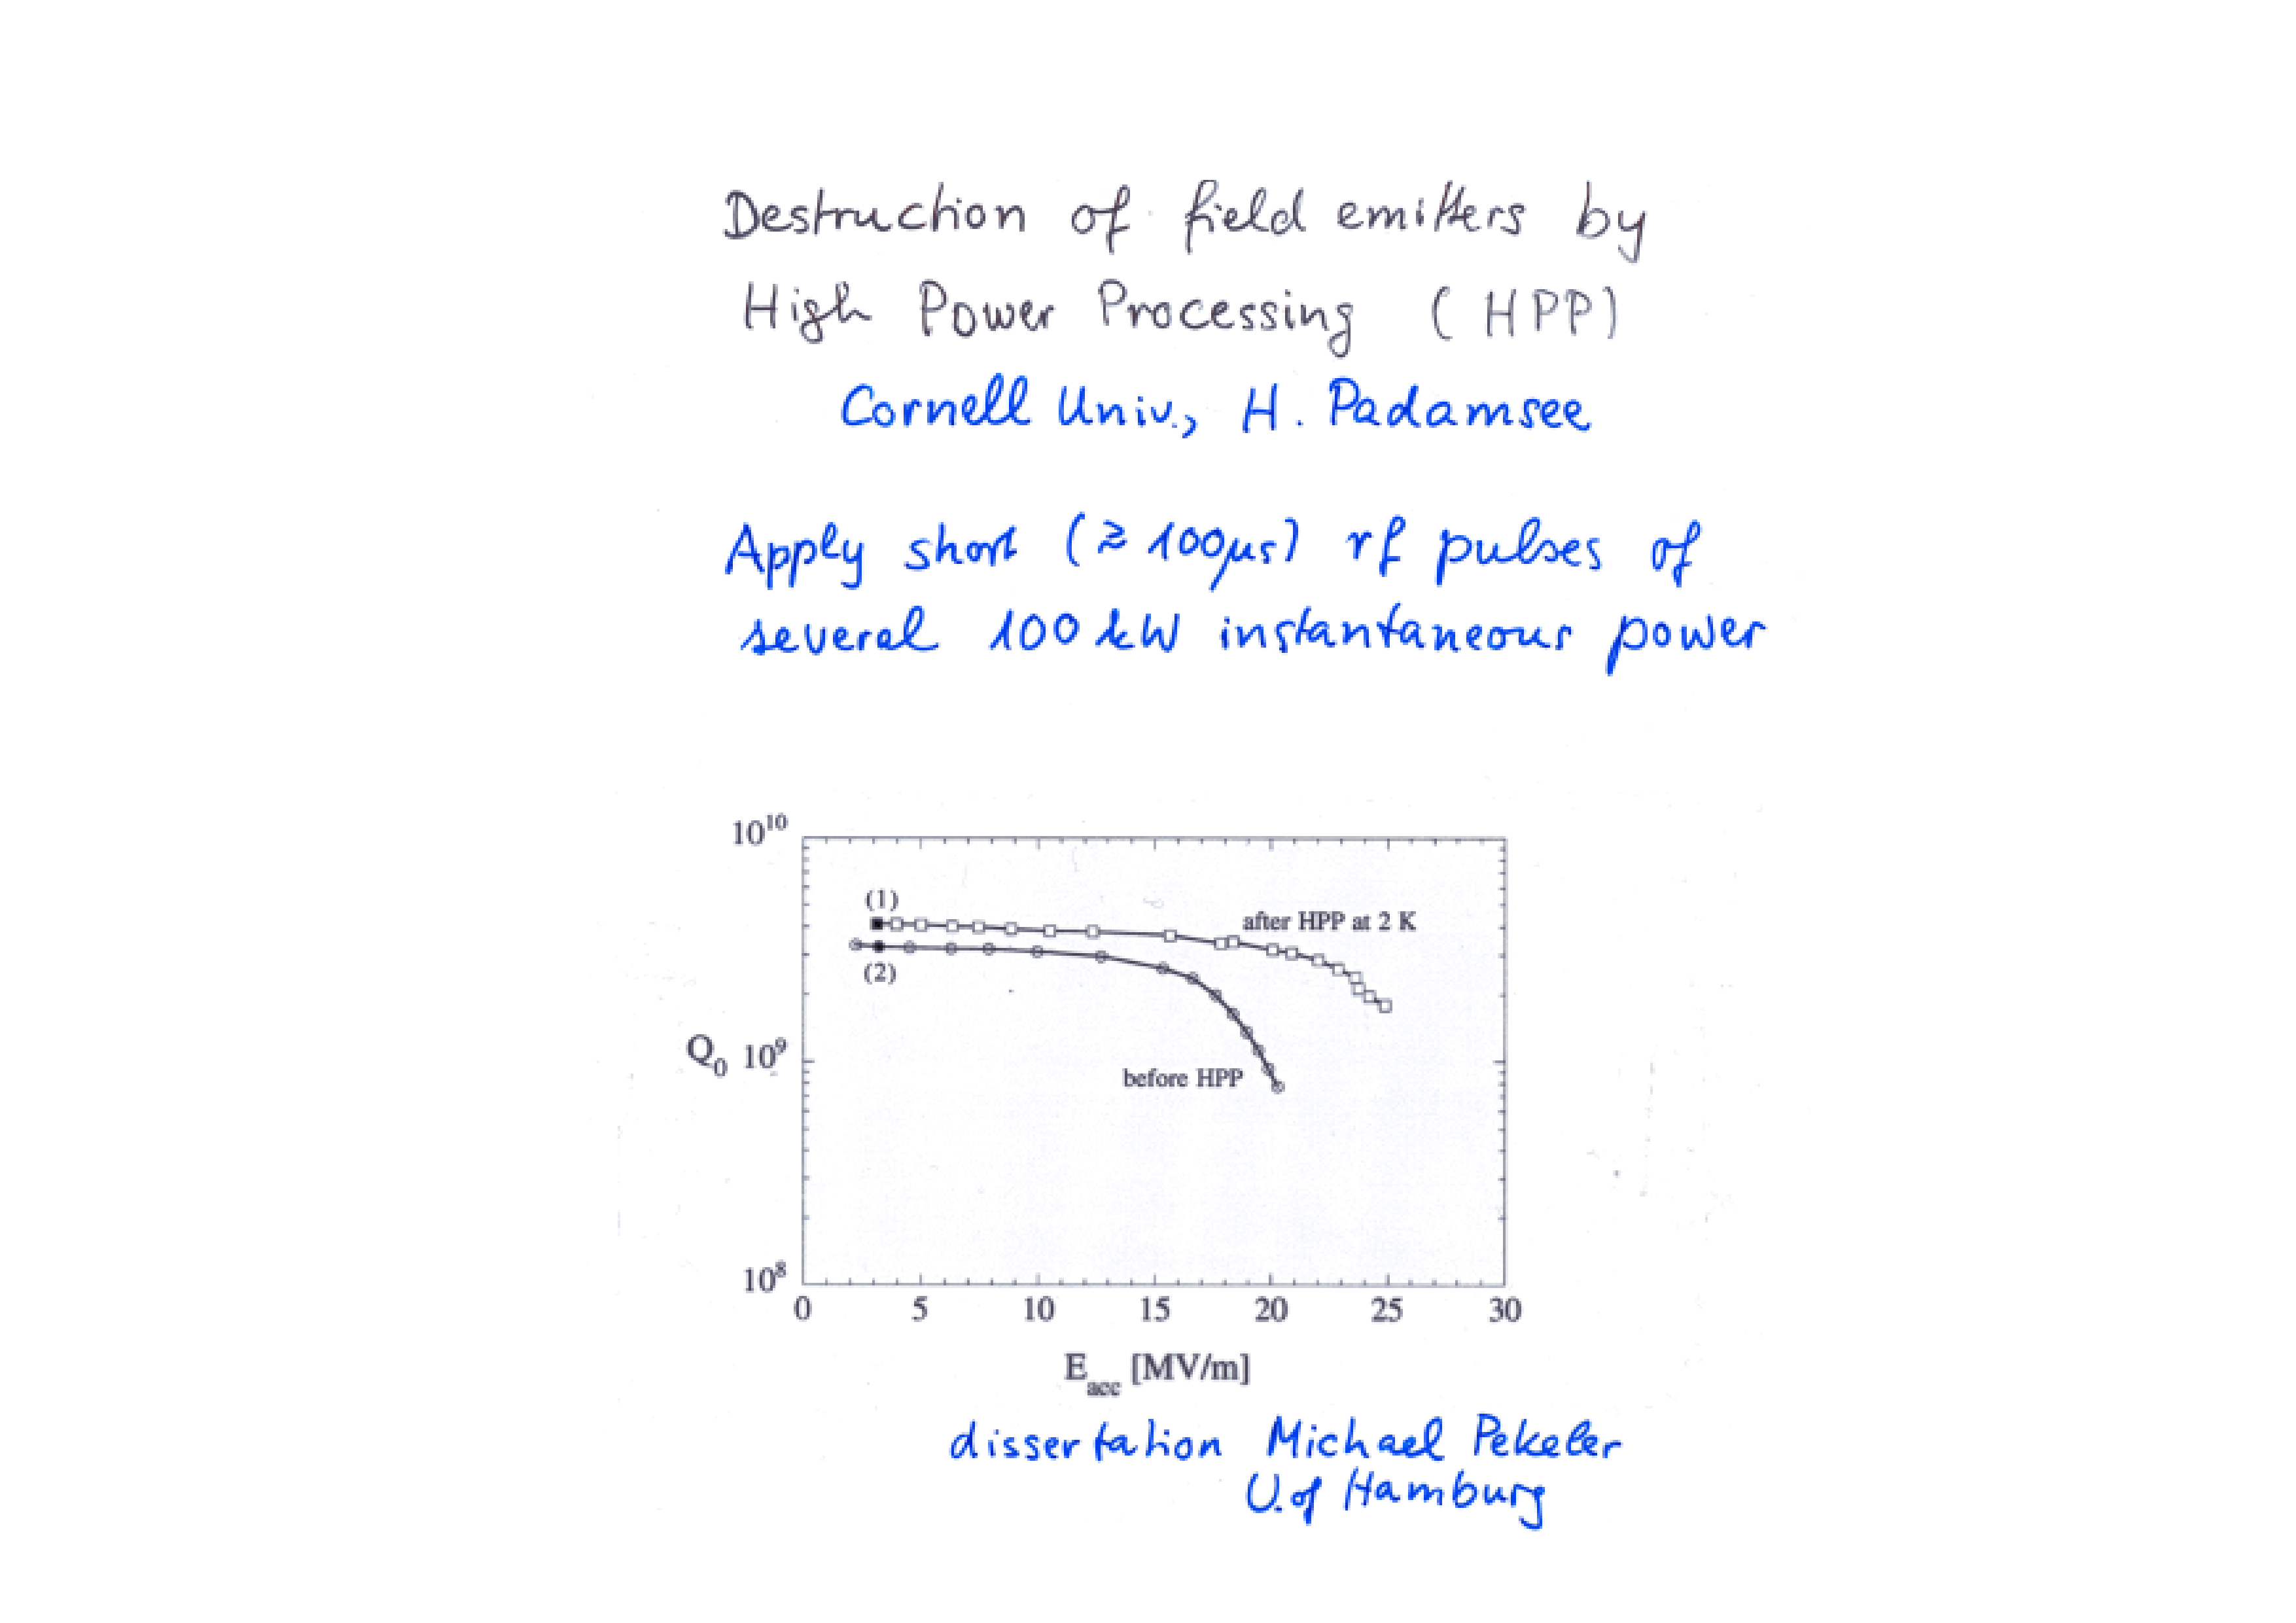 Destruction of field emitters by
High Power Processing (HPP)
Cornell Univ., H. Padamsee
Apply short (≳ 100µs) rf pulses of
several 100 kW instantaneous power
10¹⁰
(1)
after HPP at 2 K
(2)
Q₀ 10⁹
before HPP
10⁸
0 5 10 15 20 25 30
E_acc [MV/m]
dissertation Michael Pekeler
U. of Hamburg